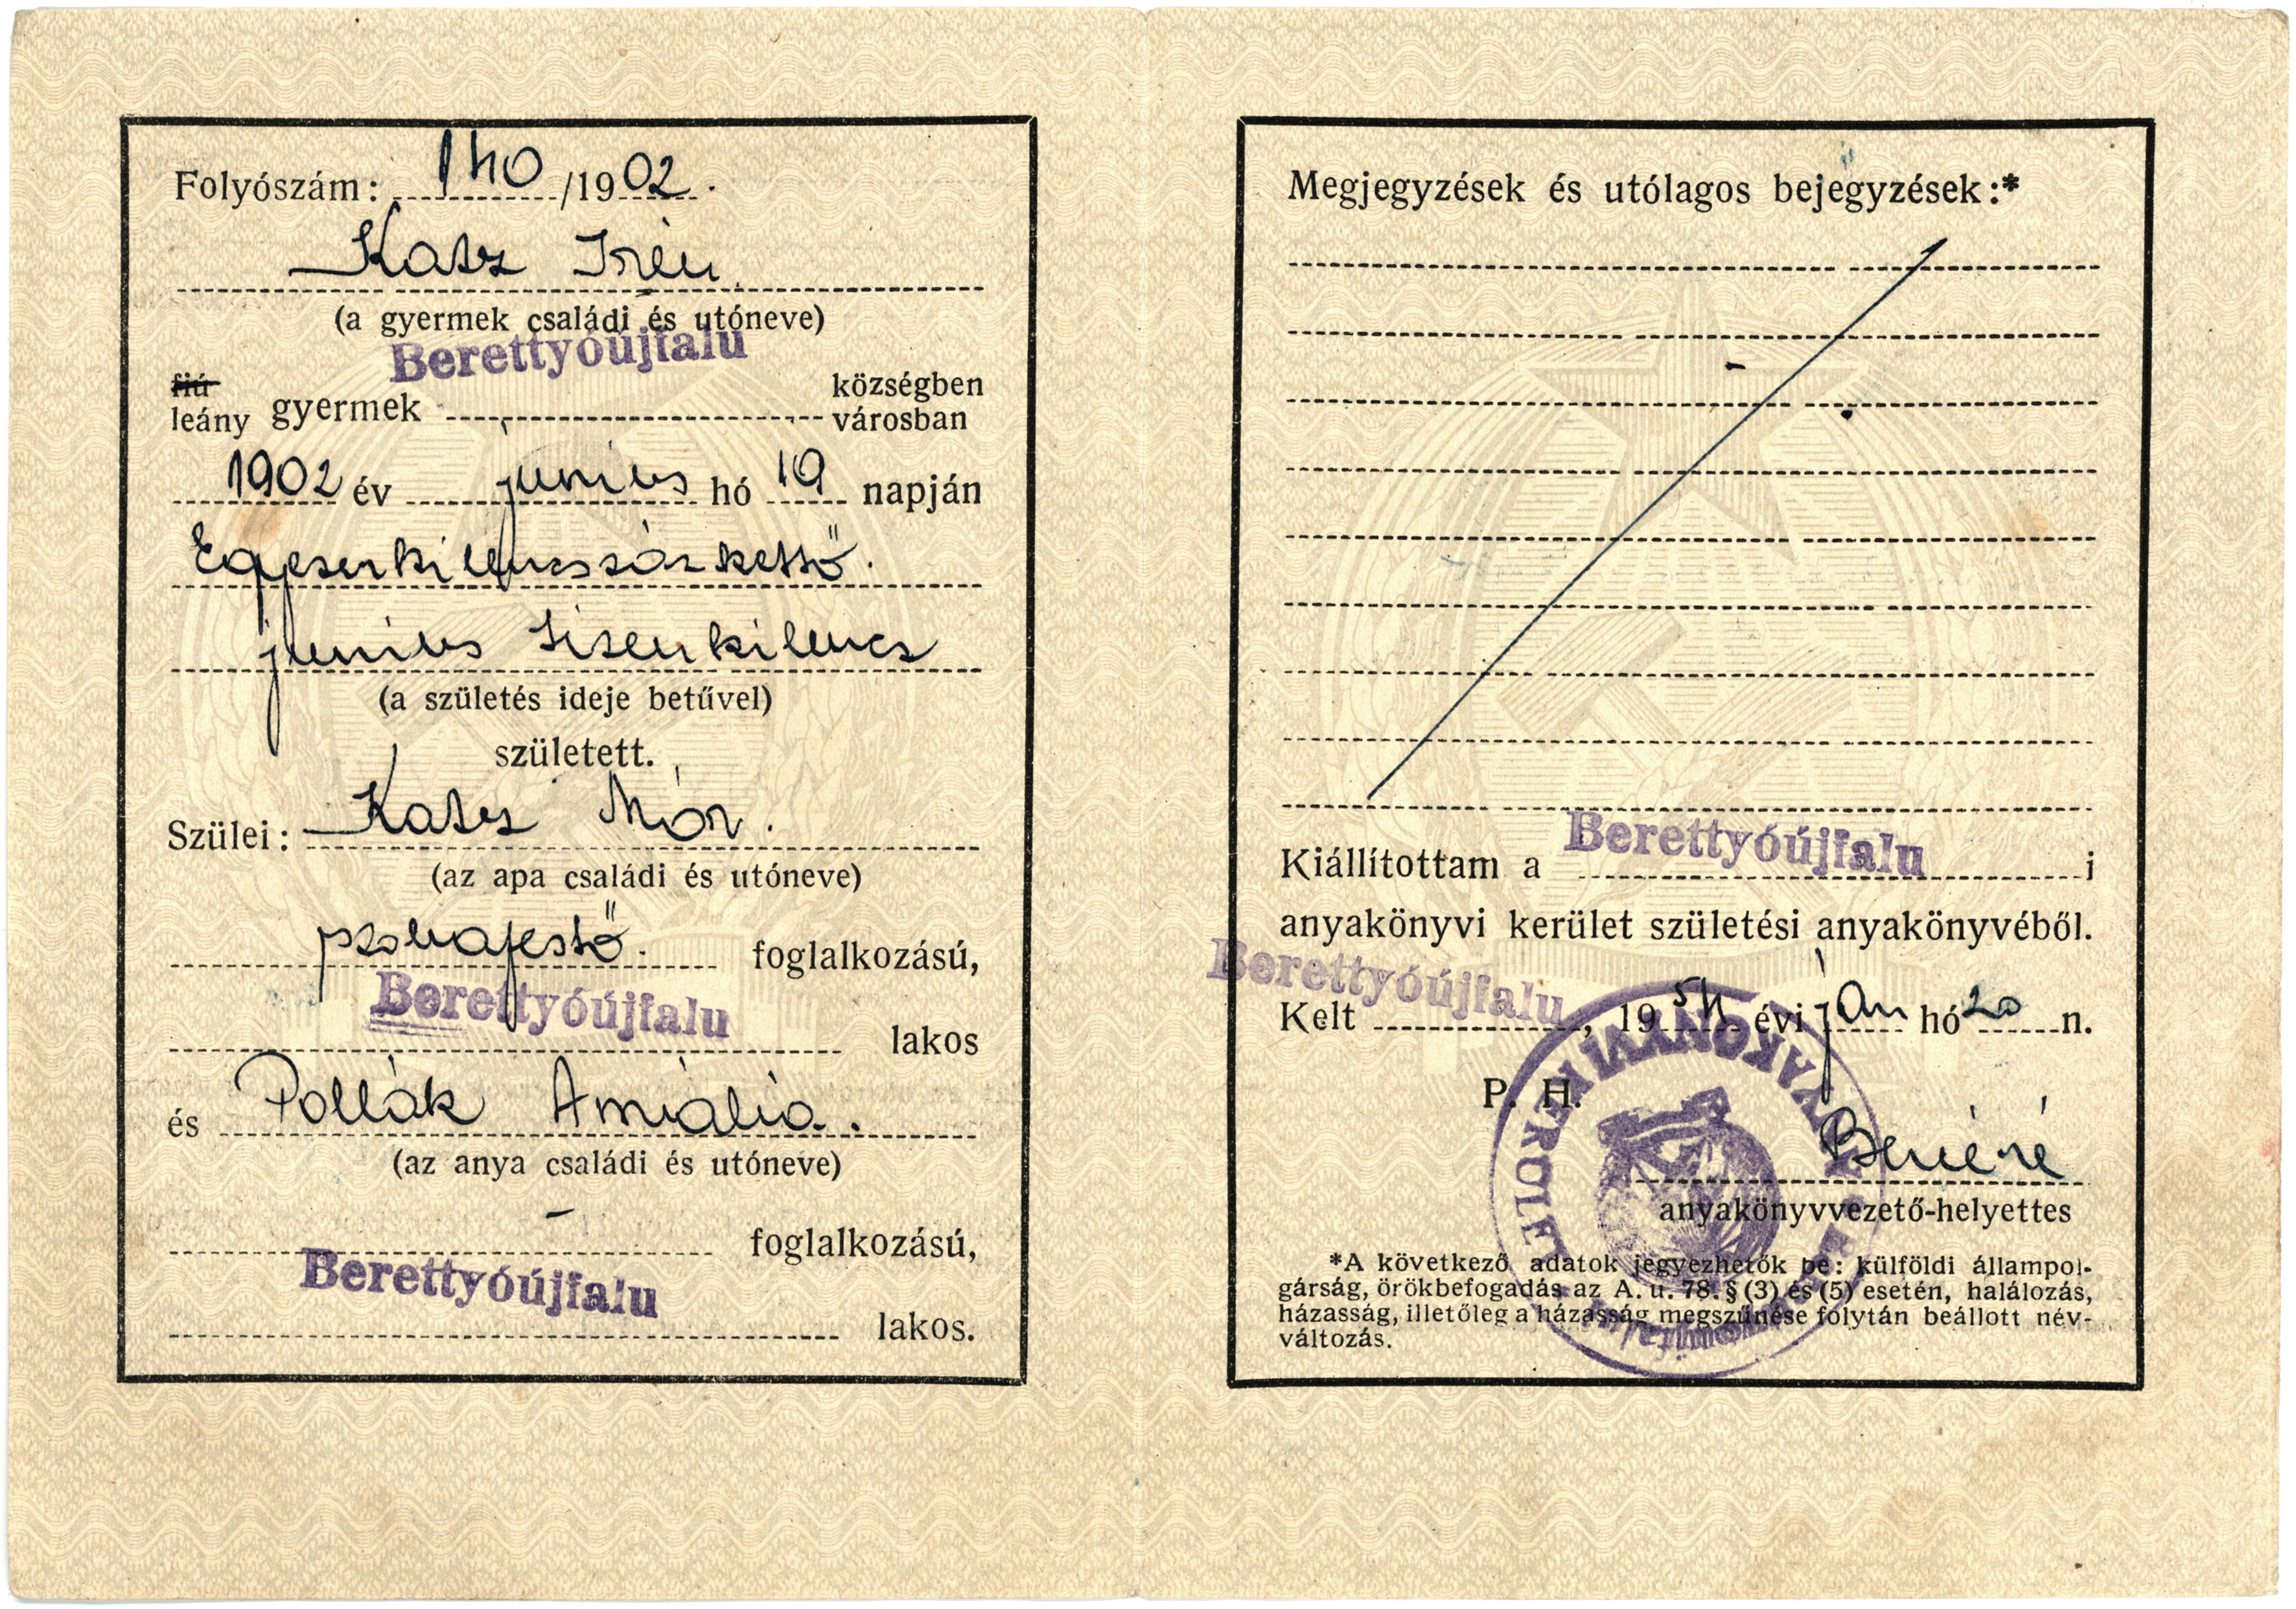 Folyószám: 140/1902.
Katz Irén
(a gyermek családi és utóneve)
Berettyóújfalu
fiú községben
leány gyermek városban
1902 év junius hó 19 napján
Egyezerkilencszázkettő.
junius tizenkilencz
(a születés ideje betűvel)
született.
Szülei: Katz Mór.
(az apa családi és utóneve)
szobafestő. foglalkozású,
Berettyóújfalu
lakos
és Pollák Amália.
(az anya családi és utóneve)
- foglalkozású,
Berettyóújfalu
lakos.
Megjegyzések és utólagos bejegyzések:*
Kiállítottam a Berettyóújfalu i
anyakönyvi kerület születési anyakönyvéből.
Kelt Berettyóújfalu, 1954 évi jan hó 20 n.
P. H.
ANYAKÖNYVI KERÜLET
anyakönyvvezető-helyettes
*A következő adatok jegyezhetők be: külföldi állampol-
gárság, örökbefogadás az A. u. 78. § (3) és (5) esetén, halálozás,
házasság, illetőleg a házasság megszűnése folytán beállott név-
változás.